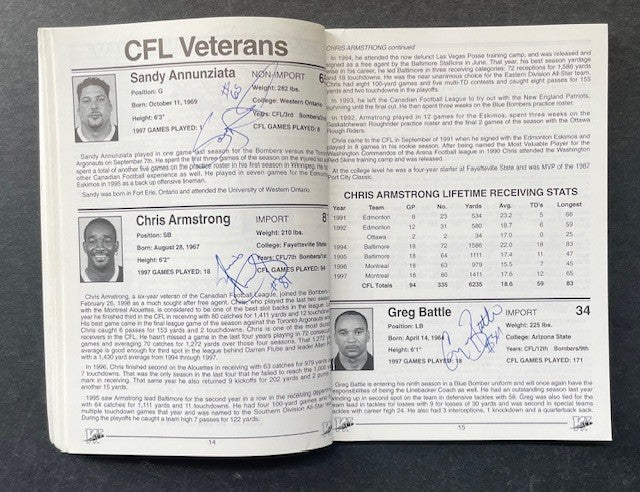 CFL Veterans
Sandy Annunziata NON-IMPORT 6
Position: G Weight: 282 lbs.
Born: October 11, 1969 College: Western Ontario
Height: 6'3" Years: CFL/3rd Bombers/
1997 GAMES PLAYED: CFL GAMES PLAYED: 8
#63
Sandy Annunziata played in one game last season for the Bombers versus the Toronto
Argonauts on September 7th. He spent the first three games of the season on the injured list and
spent a total of another five games on the practice roster in his first season in Winnipeg. He has
other Canadian Football experience as well. He played in seven games for the Edmonton
Eskimos in 1995 as a back up offensive lineman.
Sandy was born in Fort Erie, Ontario and attended the University of Western Ontario.
Chris Armstrong IMPORT 81
Position: SB Weight: 210 lbs.
Born: August 28, 1967 College: Fayetteville State
Height: 6'2" Years: CFL/7th Bombers/1st
1997 GAMES PLAYED: 18 CFL GAMES PLAYED: 94
#81
Chris Armstrong, a six-year veteran of the Canadian Football League, joined the Bombers
February 26, 1998 as a much sought after free agent. Chris, who played the last two seasons
with the Montreal Alouettes, is considered to be one of the best slot backs in the league. Last
year he finished third in the CFL in receiving with 80 catches for 1,411 yards and 12 touchdowns.
His best game came in the final league game of the season against the Toronto Argonauts when
Chris caught 6 passes for 153 yards and 2 touchdowns. Chris is one of the most durable
receivers in the CFL. He hasn't missed a game in the last four years playing in 72 consecutive
games and averaging 70 catches for 1,272 yards over those four seasons. That 1,272 yard
average is good enough for third spot in the league behind Darren Flutie and
with a 1,430 yard average from 1994 through 1997.
In 1996, Chris finished second on the Alouettes in receiving with 63 catches for 979 yards
7 touchdowns. That was the only season in the last four that he failed to reach the 1,000
mark in receiving. That same year he also returned 9 kickoffs for 202 yards and 2
another 15 yards.
1995 saw Armstrong lead Baltimore for the second year in a row in the receiving department
with 64 catches for 1,111 yards and 11 touchdowns. He had four 100-yard games and
multiple touchdown games that year and was named to the Southern Division All-Star
During the playoffs he caught a team high 7 passes for 122 yards.
14
CHRIS ARMSTRONG continued
In 1994, he attended the now defunct Las Vegas Posse training camp, and was released and
signed as a free agent by the Baltimore Stallions in June. That year, his best season yardage
wise in his career, he led Baltimore in three receiving categories: 72 receptions for 1,586 yards
and 18 touchdowns. He was the near unanimous choice for the Eastern Division All-Star team.
Chris had eight 100-yard games and five multi-TD contests and caught eight passes for 155
yards and two touchdowns in the playoffs.
In 1993, he left the Canadian Football League to try out with the New England Patriots,
surviving until the final cut. He then spent three weeks on the Blue Bombers practice roster.
In 1992, Armstrong played in 12 games for the Eskimos, spent three weeks on the
Saskatchewan Roughrider practice roster and the final 2 games of the season with the Ottawa
Rough Riders.
Chris came to the CFL in September of 1991 when he signed with the Edmonton Eskimos and
played in 8 games in his rookie season. After being named the Most Valuable Player for the
Washington Commandos of the Arena Football league in 1990 Chris attended the Washington
Red Skins training camp and was released.
At the college level he was a four-year starter at Fayetteville State and was MVP of the 1987
Port City Classic.
CHRIS ARMSTRONG LIFETIME RECEIVING STATS
Year Team GP No. Yards Avg. TD's Longest
1991 Edmonton 8 23 534 23.2 5 66
1992 Edmonton 12 31 580 18.7 6 59
Ottawa 2 2 34 17.0 0 25
1994 Baltimore 18 72 1586 22.0 18 83
1995 Baltimore 18 64 1111 17.4 11 47
1996 Montreal 18 63 979 15.5 7 45
1997 Montreal 18 80 1411 17.6 12 65
CFL Totals 94 335 6235 18.6 59 83
Greg Battle IMPORT 34
Position: LB Weight: 225 lbs.
Born: April 14, 1964 College: Arizona State
Height: 6'1" Years: CFL/12th Bombers/9th
1997 GAMES PLAYED: 18 CFL GAMES PLAYED: 171
Greg Battle #34
Greg Battle is entering his ninth season in a Blue Bomber uniform and will once again have the
responsibilities of being the Linebacker Coach as well. He had an outstanding season last year
winding up in second spot on the team in defensive tackles with 58. Greg was also tied for the
team lead in tackles for losses with 9 for losses of 30 yards and was second in special teams
tackles with career high 24. He also had 3 interceptions, 1 knockdown and a quarterback sack.
15